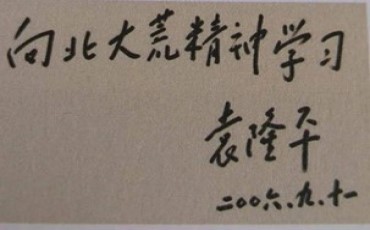 向北大荒精神学习
袁隆平
二〇〇六.九.十一